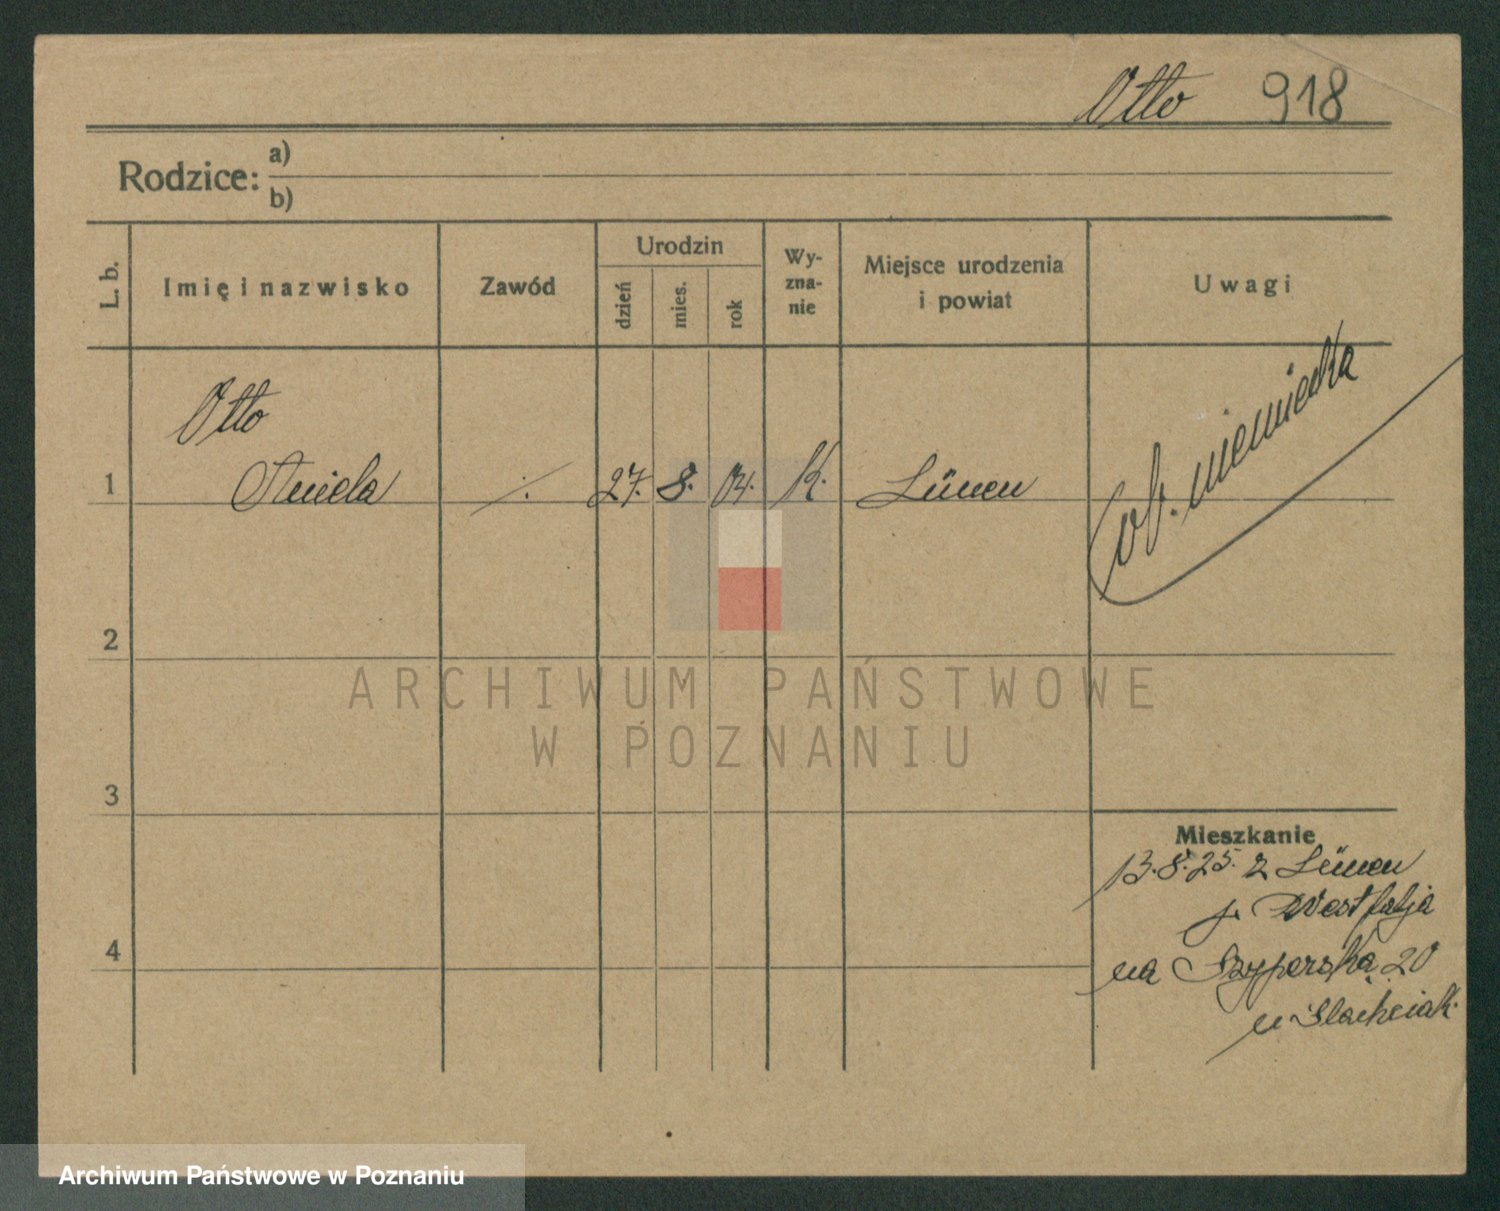 Otto 918
Rodzice: a)
b)
L. b.
Imię i nazwisko
Zawód
Urodzin
dzień
mies.
rok
Wy-
zna-
nie
Miejsce urodzenia
i powiat
Uwagi
Otto
1 Aniela ·/. 27. 8. 04. K. Lünen
ob. niemiecka
2
3
4
Mieszkanie
13.8.25. z Lünen
Westfalja
na Szyperska 20
u
ARCHIWUM PAŃSTWOWE
W POZNANIU
Archiwum Państwowe w Poznaniu